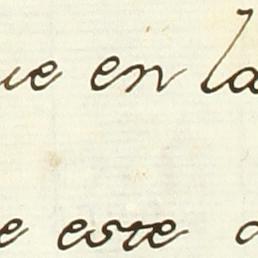 ue en la
e este